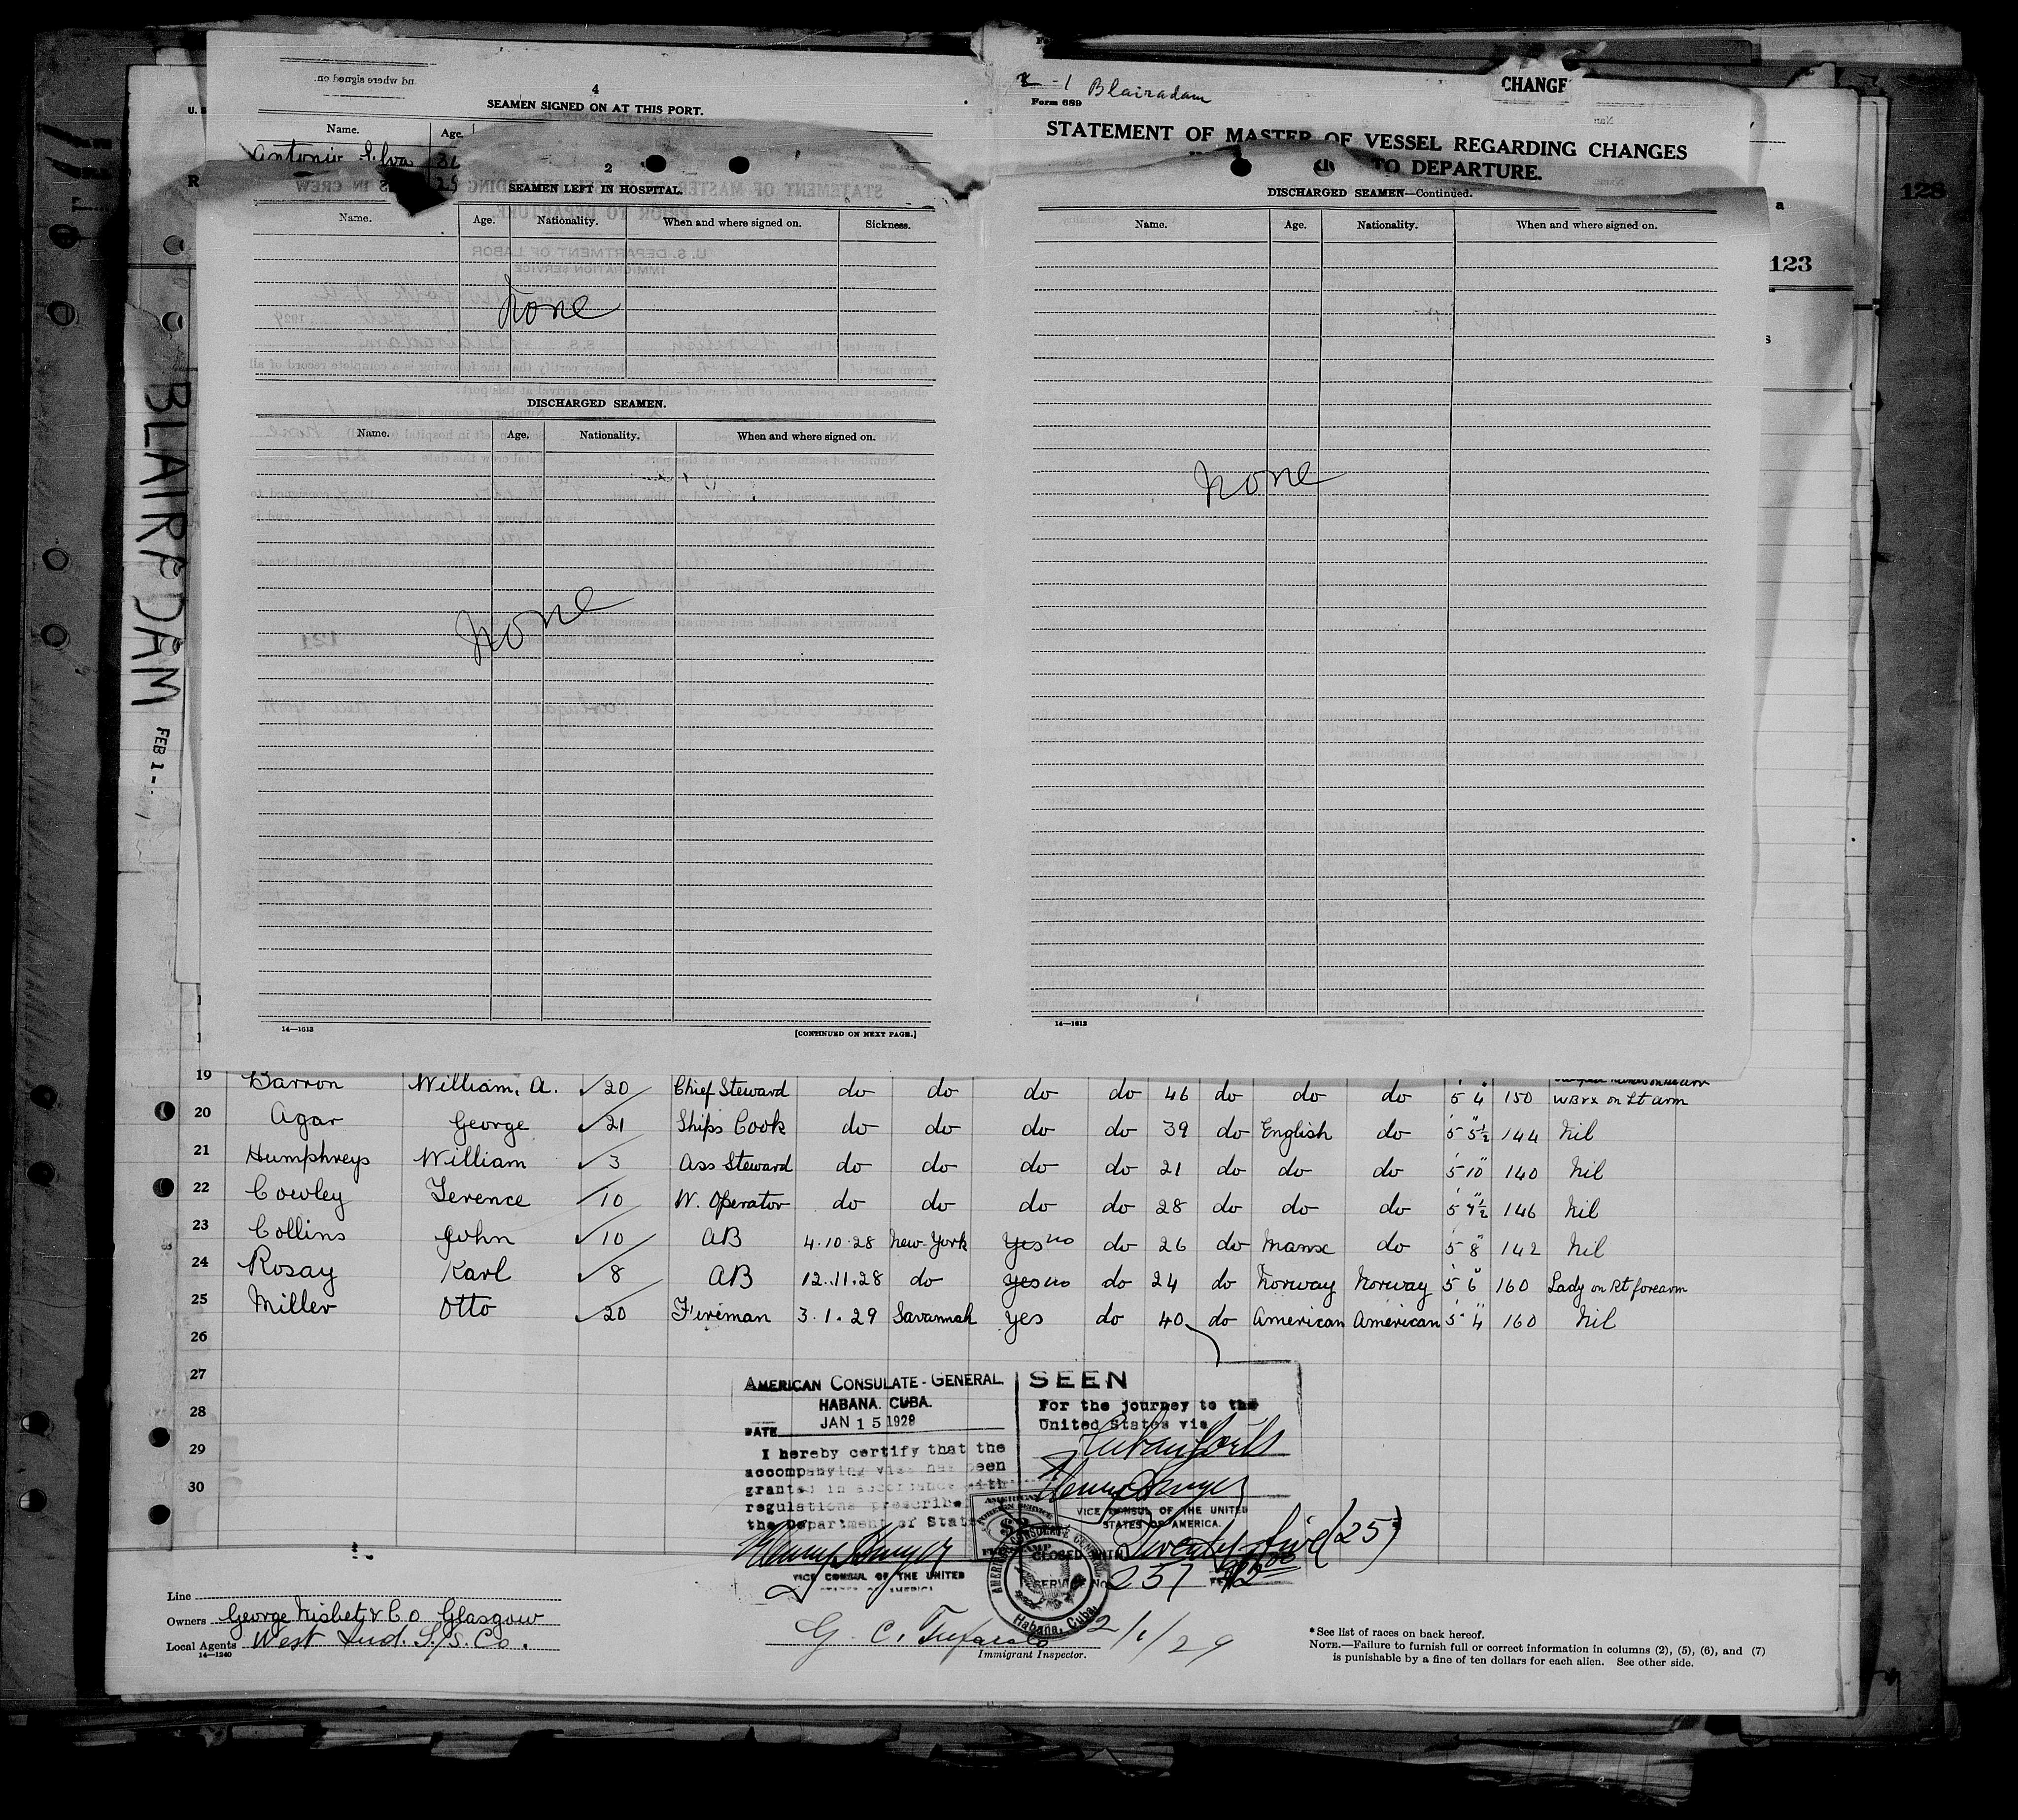 4
SEAMEN SIGNED ON AT THIS PORT.
Name. Age.
Antonio Silva 36
29
2
SEAMEN LEFT IN HOSPITAL.
Name. Age. Nationality. When and where signed on. Sickness.
None
DISCHARGED SEAMEN.
Name. Age. Nationality. When and where signed on.
None
14—1613 [CONTINUED ON NEXT PAGE.]
1 Blairadam
Form 689
CHANGE
STATEMENT OF MASTER OF VESSEL REGARDING CHANGES
TO DEPARTURE.
DISCHARGED SEAMEN—Continued.
Name. Age. Nationality. When and where signed on.
None
14—1613
128
a
123
BLAIRADAM
FEB 1-
19 Barron William, A. 20 Chief Steward do do do do 46 do do do 5' 4" 150 on Lt arm
20 Agar George 21 Ships Cook do do do do 39 do English do 5' 5½" 144 Nil
21 Humphreys William 3 Ass Steward do do do do 21 do do do 5' 10" 140 Nil
22 Cowley Terence 10 W. Operator do do do do 28 do do do 5' 7½" 146 Nil
23 Collins John 10 AB 4.10.28 New York Yes no do 26 do Manse do 5' 8" 142 Nil
24 Rosay Karl 8 AB 12.11.28 do Yes no do 24 do Norway Norway 5' 6" 160 Lady on Rt forearm
25 Miller Otto 20 Fireman 3.1.29 Savannah Yes do 40 do American American 5' 4" 160 Nil
26
27
28
29
30
AMERICAN CONSULATE-GENERAL.
HABANA. CUBA.
DATE JAN 15 1929
I hereby certify that the
accompanying visa has been
granted in accordance with
regulations prescribed
the Department of State
VICE CONSUL OF THE UNITED
STATES OF AMERICA
SEEN
For the journey to the
United States via
VICE CONSUL OF THE UNITED
STATES OF AMERICA.
CLOSED WITH Twenty-five (25)
SERVICE No. 257
AMERICAN CONSULATE GENERAL
Habana, Cuba.
Line
Owners George Nisbet & Co Glasgow
Local Agents West Ind. S/S. Co.
14—1240
G. C. 2/1/29
Immigrant Inspector.
*See list of races on back hereof.
NOTE.—Failure to furnish full or correct information in columns (2), (5), (6), and (7)
is punishable by a fine of ten dollars for each alien. See other side.